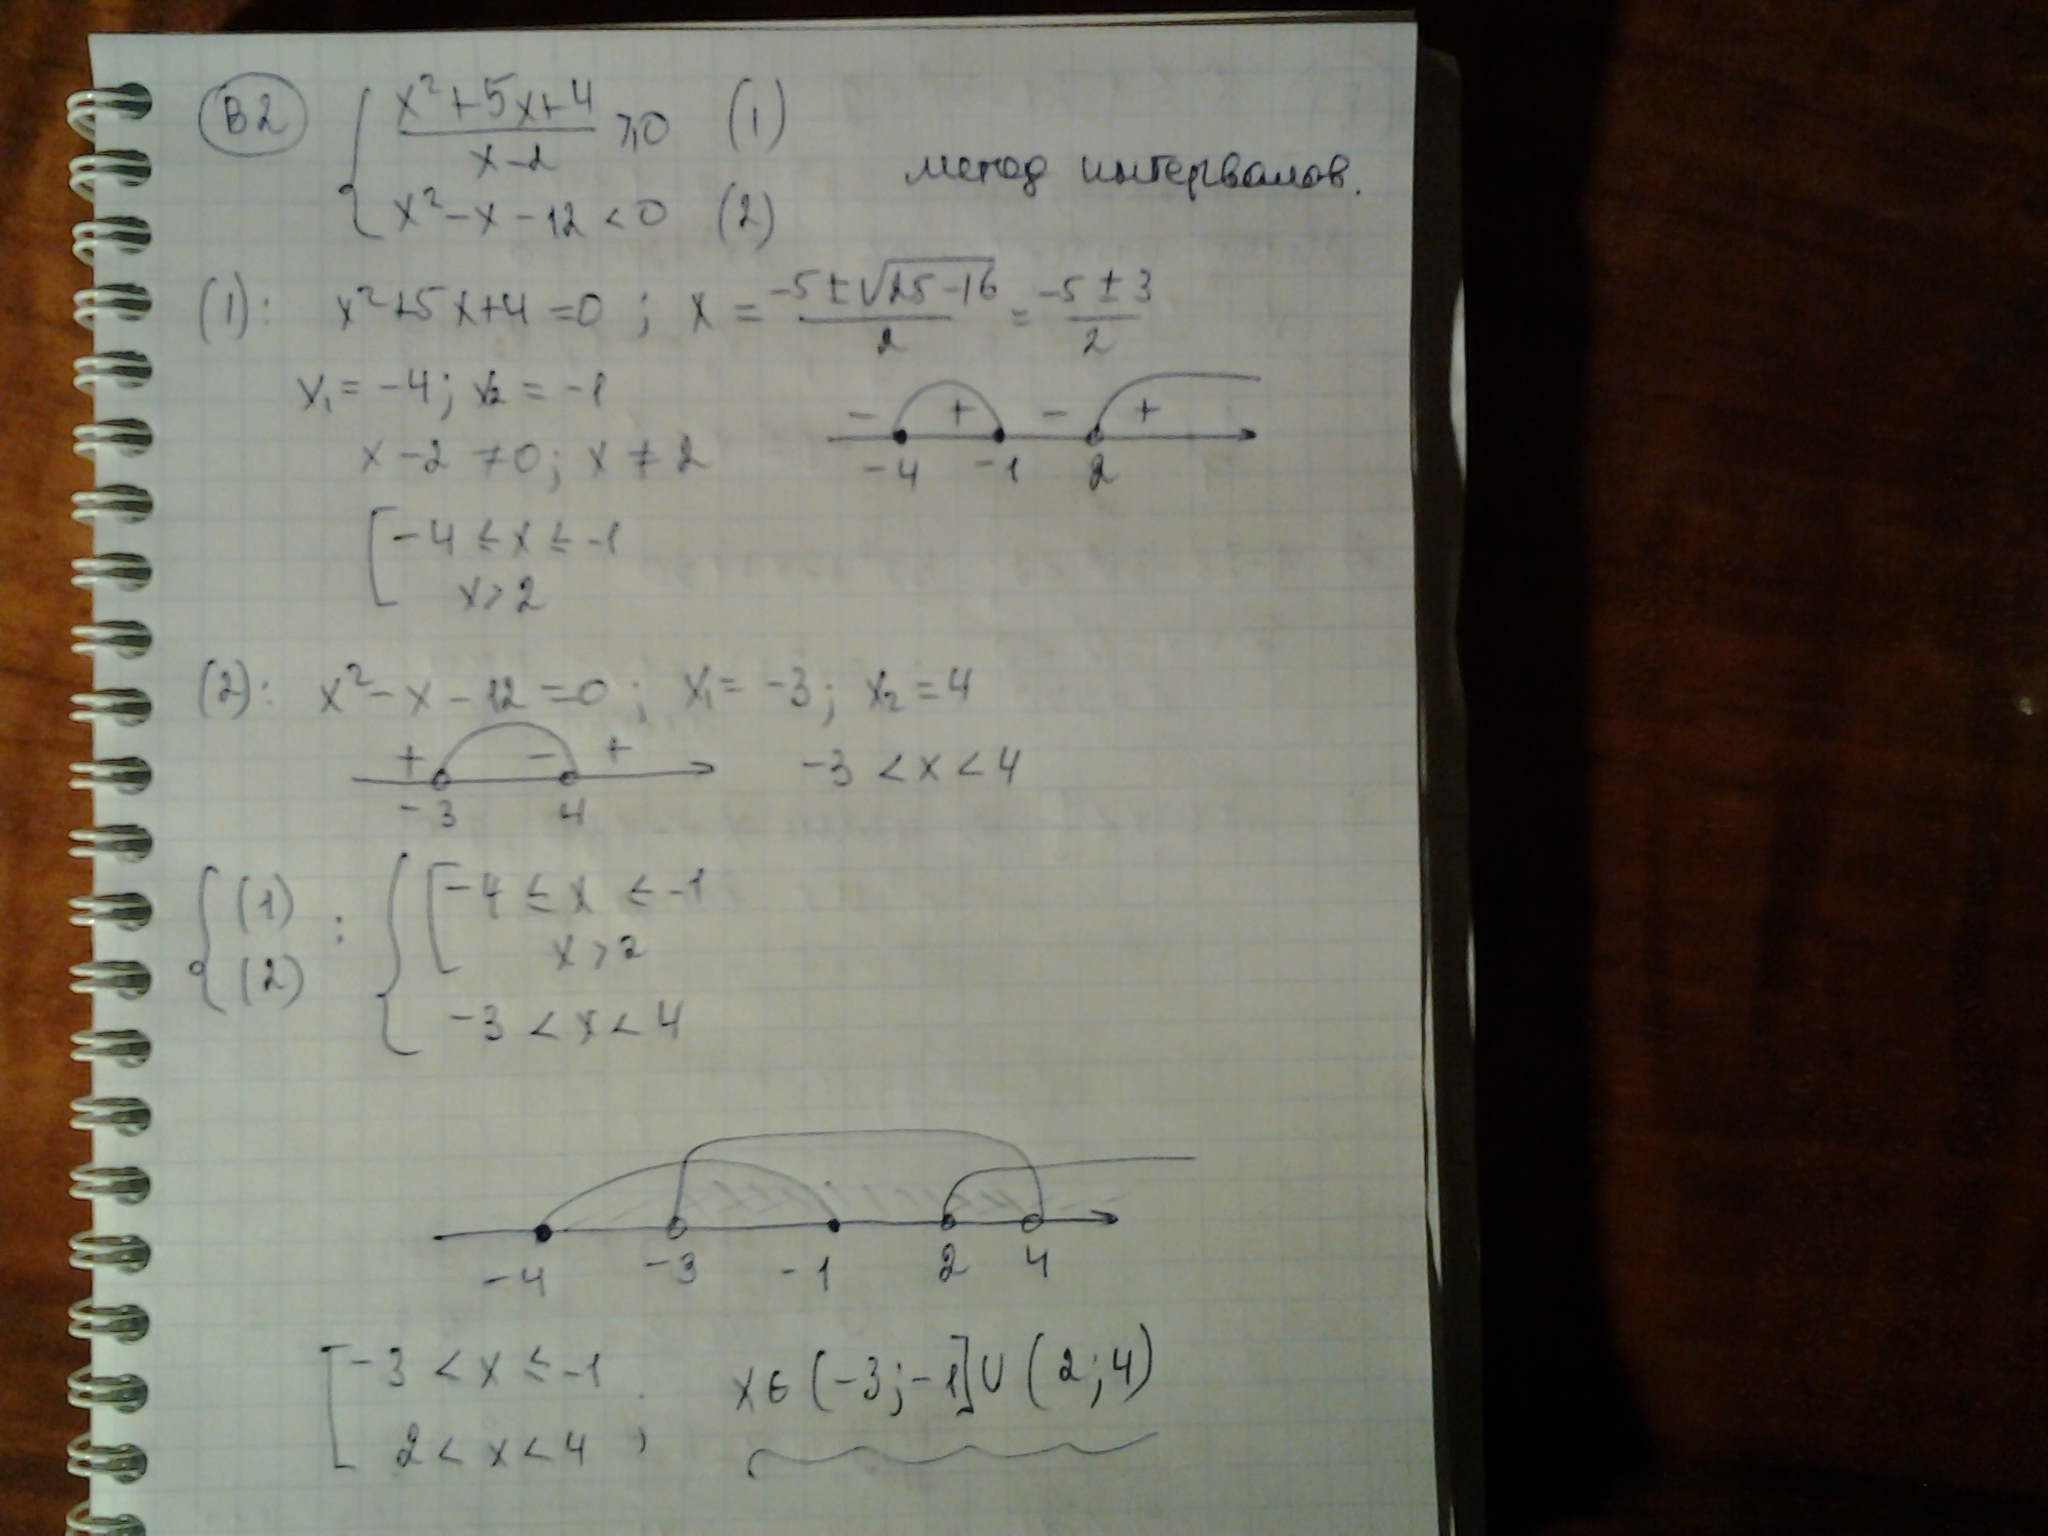 В2 { (x²+5x+4)/(x-2) ≥ 0 (1)
метод интервалов.
x²-x-12<0 (2)
(1): x²+5x+4=0; x = (-5±√(25-16))/2 = (-5±3)/2
x₁=-4; x₂=-1
- + - +
-4 -1 2
x-2≠0; x≠2
[ -4≤x≤-1
x>2
(2): x²-x-12=0; x₁=-3; x₂=4
+ - +
-3 4
-3<x<4
{ (1) (2) : { [ -4≤x≤-1
x>2
-3<x<4
-4 -3 -1 2 4
[ -3<x≤-1
2<x<4 ; x∈(-3;-1]∪(2;4)